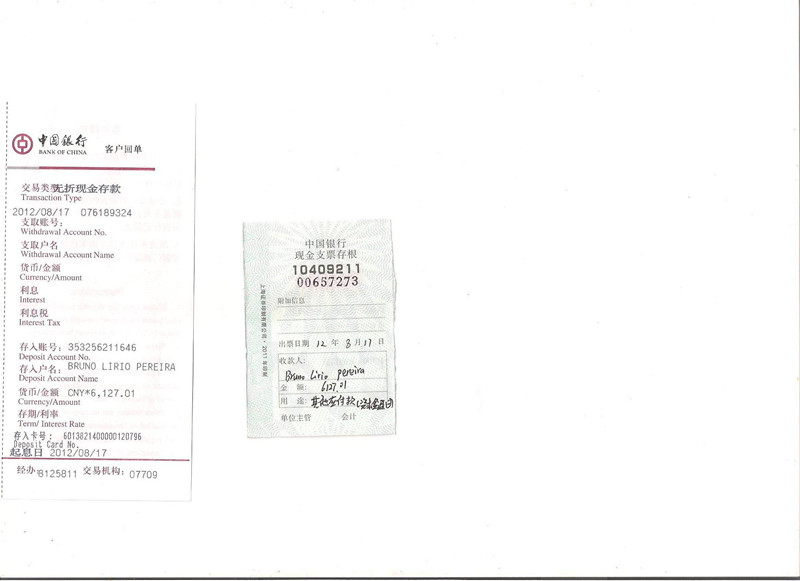 中国银行
BANK OF CHINA
客户回单
交易类型 无折现金存款
Transaction Type
2012/08/17 076189324
支取账号：
Withdrawal Account No.
支取户名
Withdrawal Account Name
货币/金额
Currency/Amount
利息
Interest
利息税
Interest Tax
存入账号：353256211646
Deposit Account No.
存入户名：BRUNO LIRIO PEREIRA
Deposit Account Name
货币/金额 CNY*6,127.01
Currency/Amount
存期/利率
Term/ Interest Rate
存入卡号：6013821400000120796
Deposit Card No.
起息日 2012/08/17
经办 8125811 交易机构：07709
中国银行
现金支票存根
10409211
00657273
附加信息
出票日期 12 年 8 月 17 日
收款人：
Bruno Lirio pereira
金 额：6127.01
用 途：其他应付款
单位主管 会计
上海证券印制有限公司·2011年印制